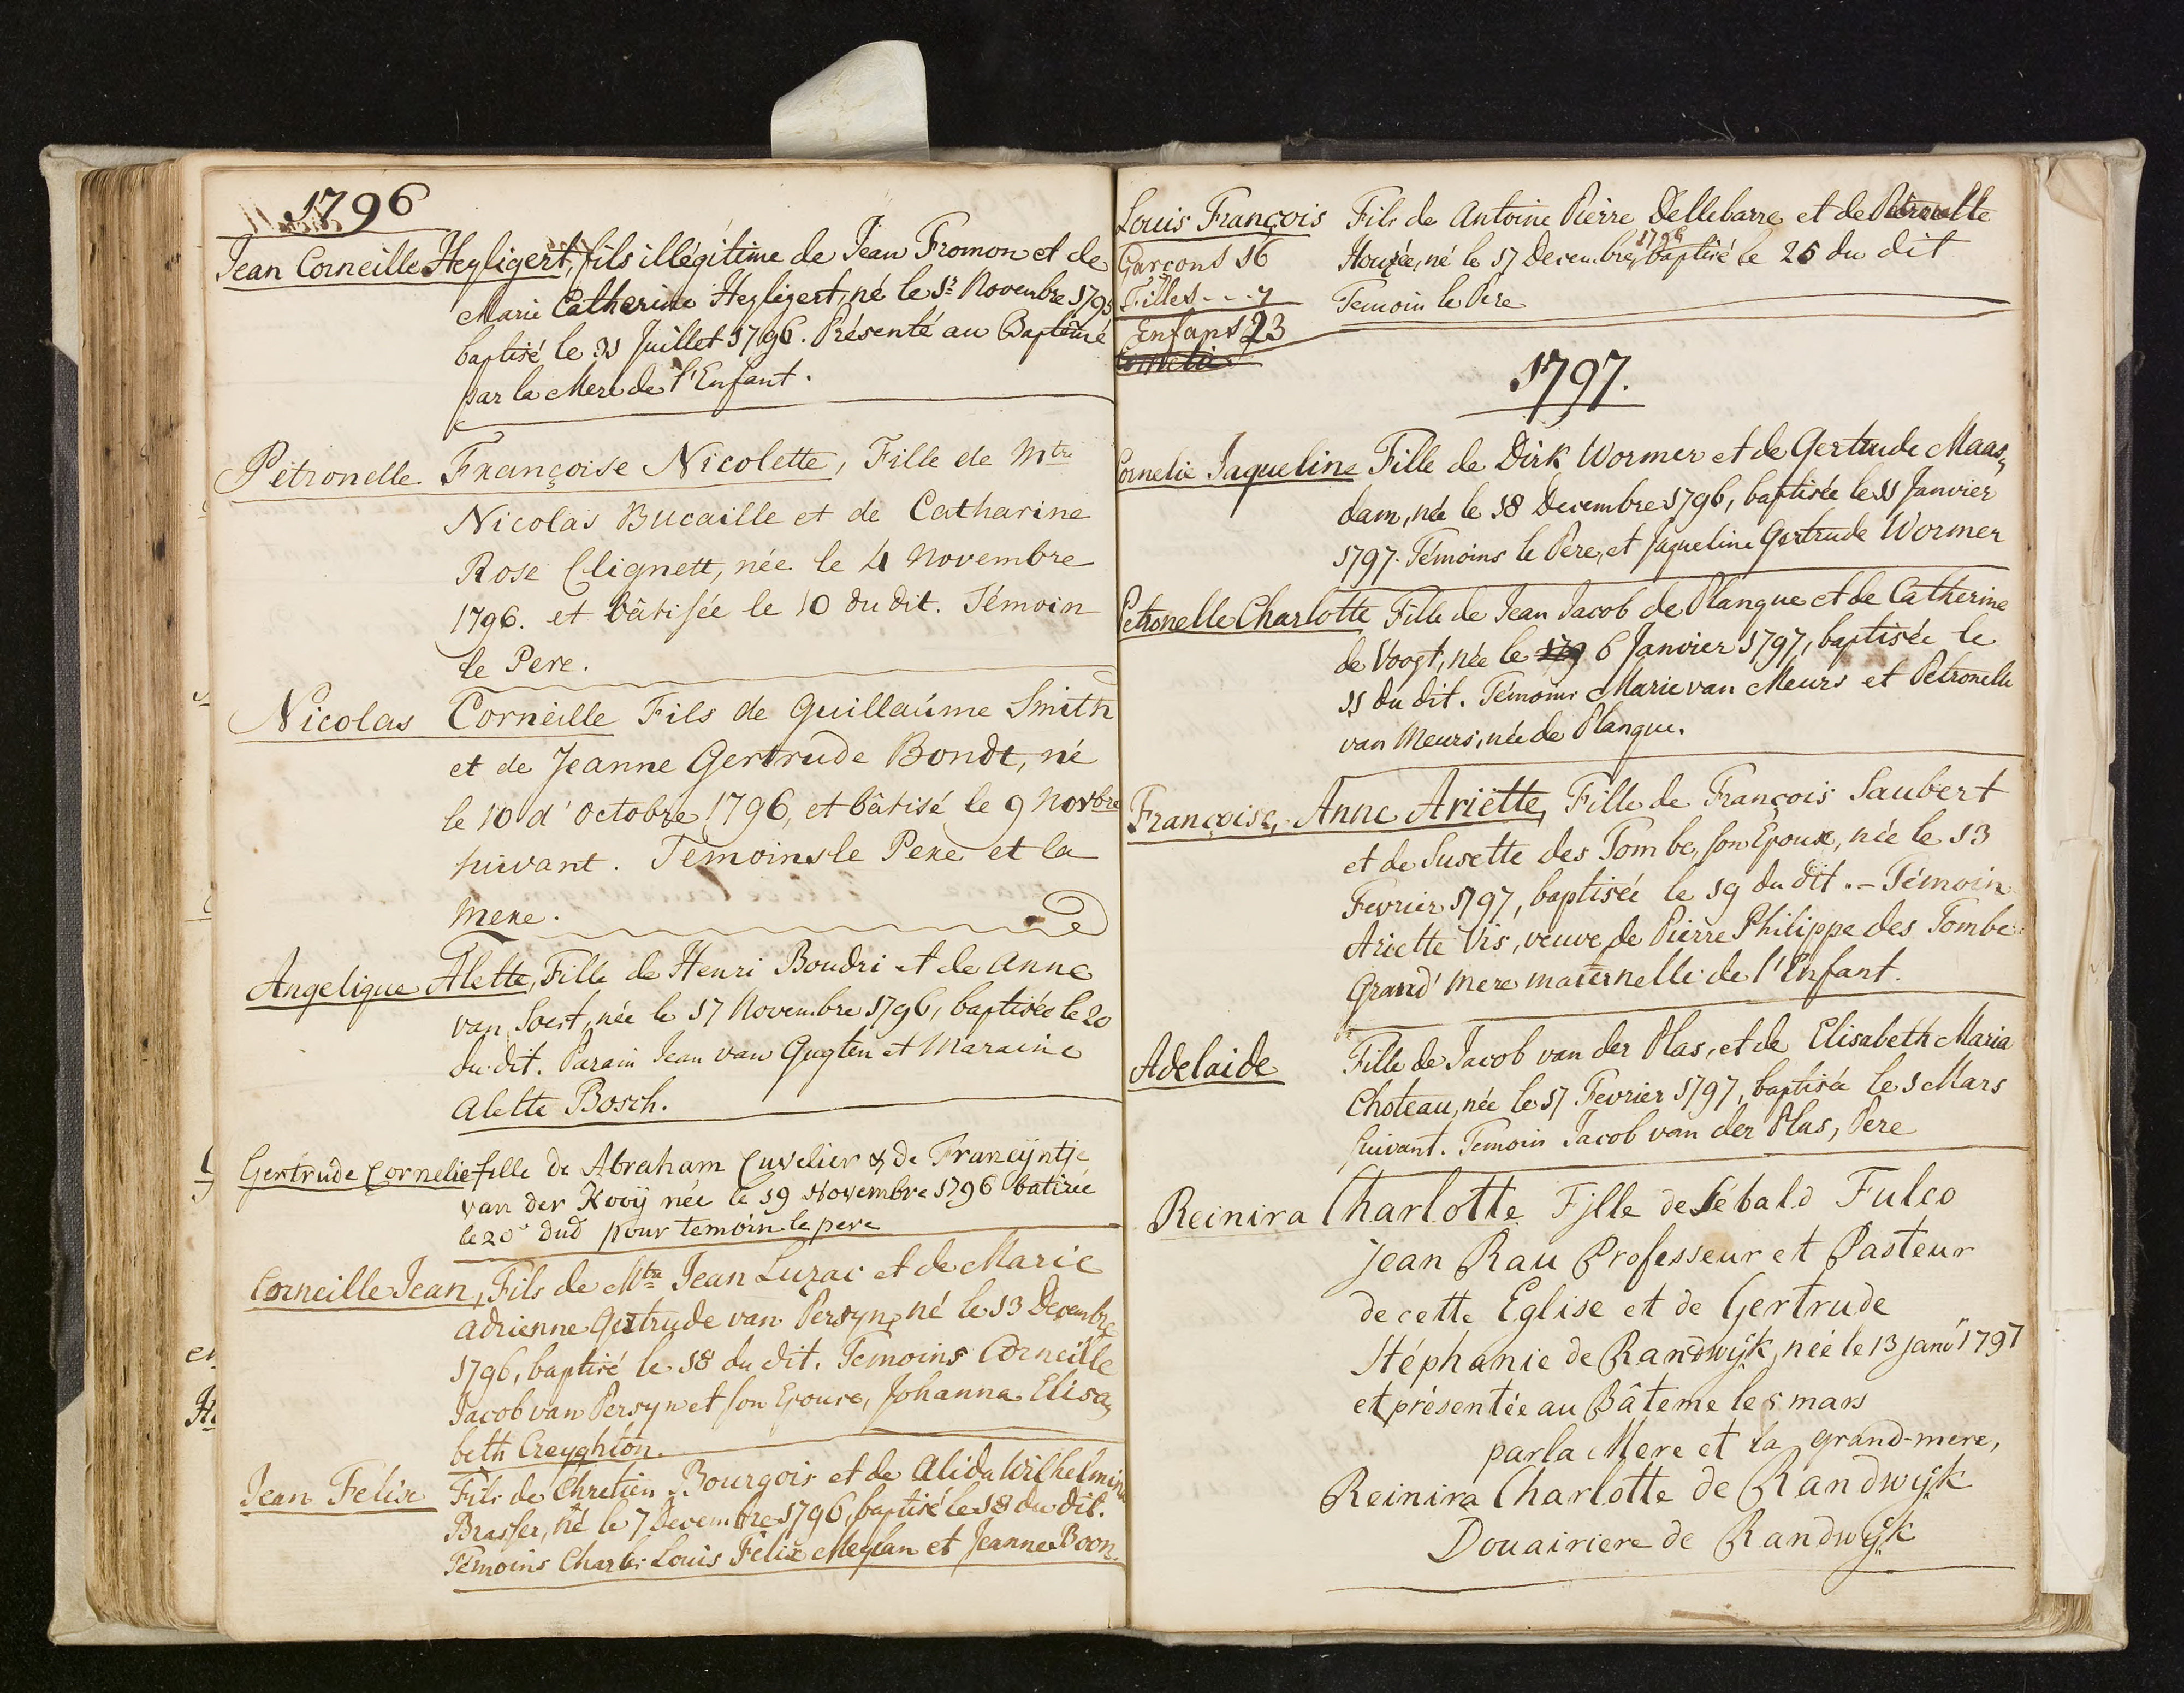 1796
Jean Corneille Heyligert, fils illégitime de Jean Fromon et de
Marie Catherine Heyligert, né le 1r Novembre 1795
baptisé le 31 Juillet 1796. Présenté au Baptême
par la Mere de l'Enfant.
Pétronelle Françoise Nicolette, Fille de Mtre
Nicolas Bucaille et de Catharine
Rose Clignett, née le 4 Novembre
1796. et bâtisée le 10 du dit. Témoin
le Pere.
Nicolas Corneille Fils de Guillaúme Smith
et de Jeanne Gertrude Bondt, né
le 10 d'Octobre 1796, et bâtisé le 9 Novbre
suivant. Temoins le Pere et la
mere.
Angelique Alette, Fille de Henri Boudri et de Anne
van Soest, née le 17 Novembre 1796, baptisée le 20
du dit. Parain Jean van Gugten et Maraine
Alette Bosch.
Gertrude Cornelie fille de Abraham Cuvelier & de Francijntje
van der Kooij née le 19 Novembre 1796 batizée
le 20e dud pour temoin le pere
Corneille Jean, Fils de Mtre Jean Luzac et de Marie
Adrienne Gertrude van Persyn, né le 13 Decembre
1796, baptisé le 18 du dit. Temoins Corneille
Jacob van Persyn et son Epouse, Johanna Elisa
beth Creyghton.
Jean Felix Fils de Chretien Bourgois et de Alida Wilhelmina
Brasser, né le 7 Decembre 1796, baptisé le 18 du dit.
Témoins Charles Louis Félix Meylan et Jeanne Boon.
Louis François Fils de Antoine Pierre Dellebarre et de Petronelle
Garçons 16 Houzée, né le 17 Decembre 1796 baptisé le 25 du dit
Filles - - - 7 Temoin le Pere
Enfans 23
Cornelie
1797.
Cornelie Jaqueline Fille de Dirk Wormer et de Gertrude Maas=
dam, née le 18 Decembre 1796, baptisée le 11 Janvier
1797. Témoins le Pere, et Jaqueline Gertrude Wormer
Petronelle Charlotte Fille de Jean Jacob de Planque et de Catherine
de Voogt, née le 179 6 Janvier 1797, baptisée le
11 du dit. Témoins Marie van Meurs et Petronelle
van Meurs, née de Planque.
Françoise, Anne Ariëtte, Fille de François Saubert
et de Susette des Tombe, son Epouse, née le 13
Fevrier 1797, baptisée le 19 du dit. - Témoin
Ariette Vis, veuve de Pierre Philippe des Tombe
Grand' mere maternelle de l'Enfant.
Adelaide Fille de Jacob van der Plas, et de Elisabeth Maria
Choteau, née le 17 Fevrier 1797, baptisée le 1 Mars
suivant. Temoin Jacob van der Plas, Pere
Reinira Charlotte Fille de Sébald Fulco
Jean Rau Professeur et Pasteur
de cette Eglise et de Gertrude
Stéphanie de Randwijk, née le 13 janvr 1797
et présentée au Bâteme le 5 mars
par la Mere et la grand-mere,
Reinira Charlotte de Randwijk
Douairiere de Randwijk